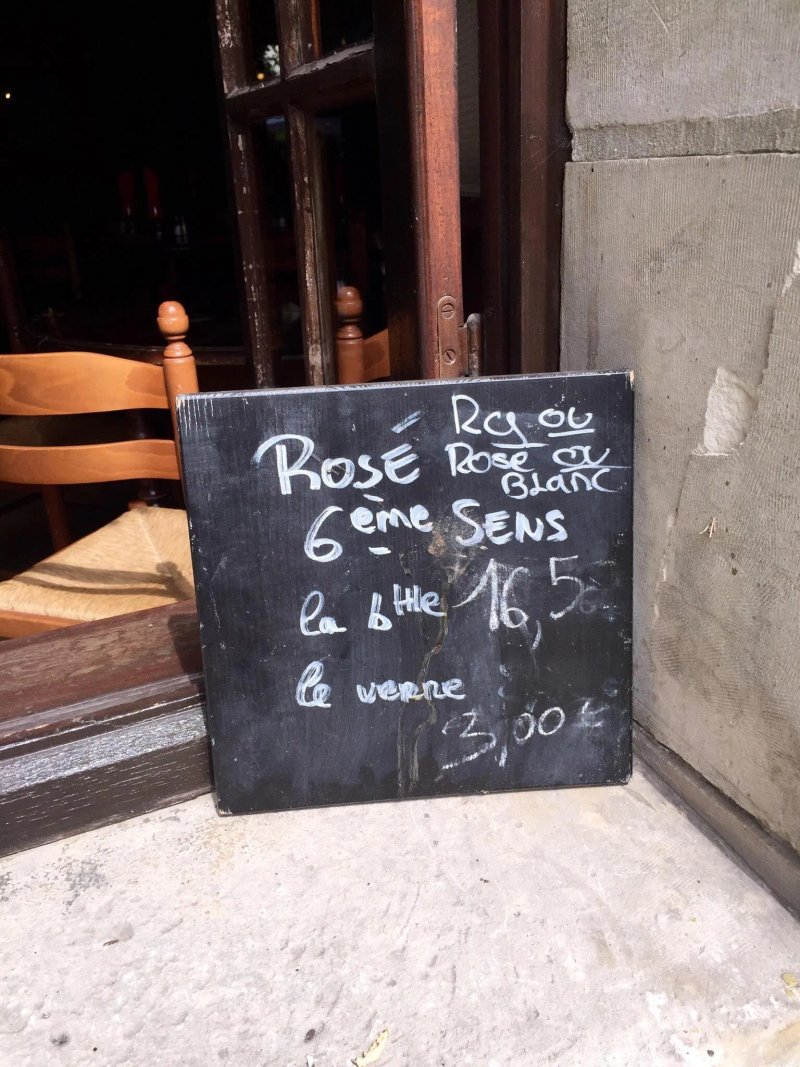 ROSÉ
Rg ou
Rose ou
BLanc
6ème SENS
la btlle 16,5
le verre
3,00 €